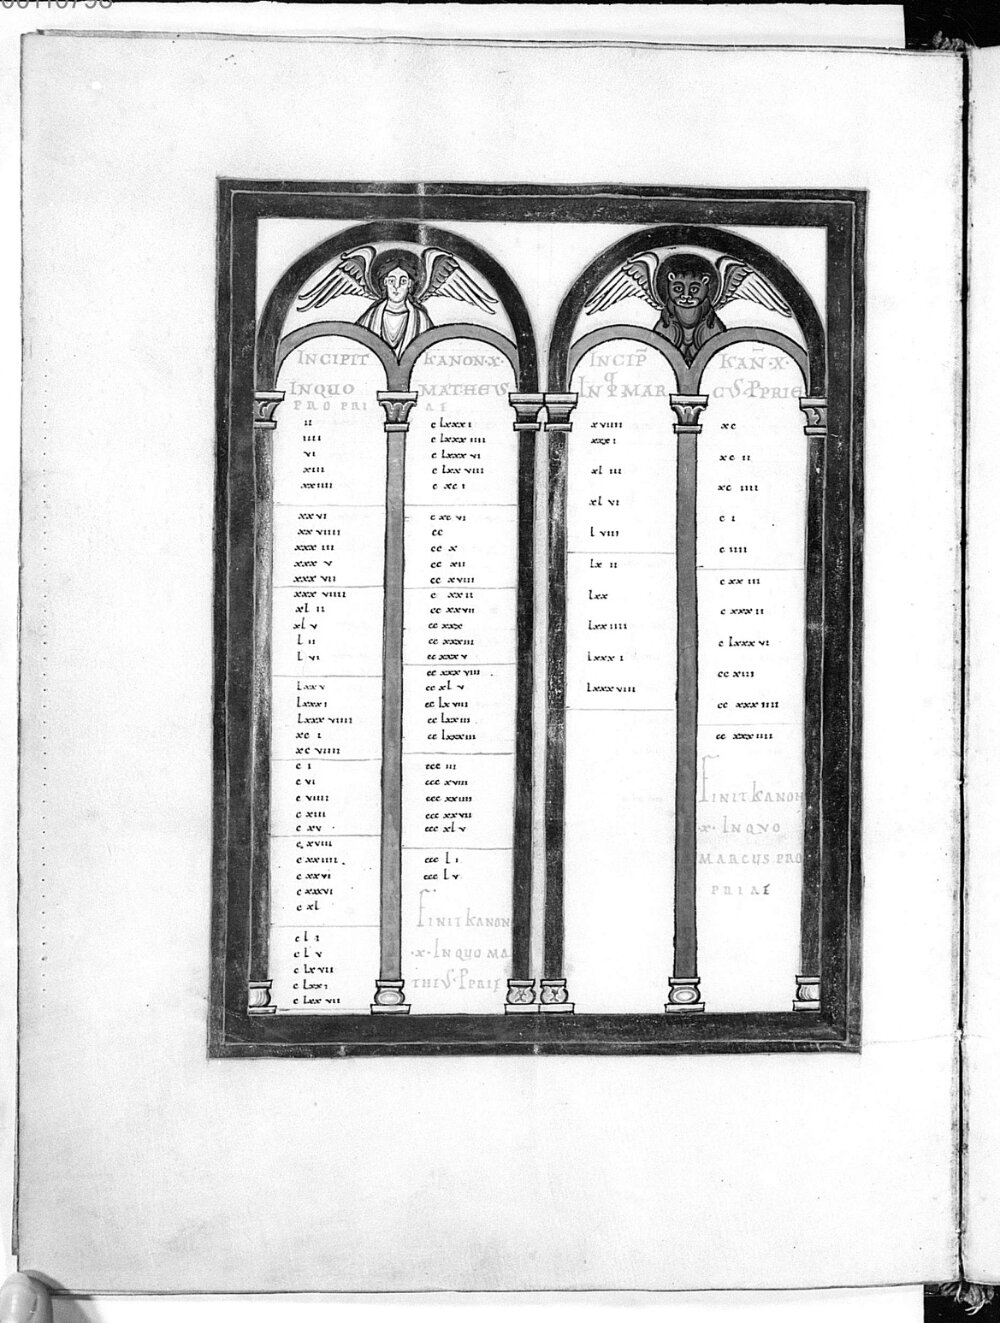 INCIPIT KANON·X·
INQUO MATHEUS
PROPRIAE
ii
iiii
vi
xiii
xxiiii
xxvi
xxviiii
xxxiii
xxxv
xxxvii
xxxviiii
xlii
xlv
lii
lvi
lxxv
lxxxi
lxxxviiii
xci
xcviiii
ci
cvi
cviiii
cxiii
cxv
cxviii
cxxiiii
cxxvi
cxxxvi
cxl
cli
clv
clxvii
clxxi
clxxvii
clxxxi
clxxxiiii
clxxxvi
clxxviii
cxci
cxcvi
cc
ccx
ccxii
ccxviii
cxxii
ccxxvii
ccxxx
ccxxxiii
ccxxxv
ccxxxviii
ccxlv
cclxviii
cclxxiii
cclxxxiii
ccciii
cccxviii
cccxxiiii
cccxxvii
cccxlv
cccli
ccclv
FINIT KANON
·X· INQUO MA
THEUS·PPRIE
INCIP̄ KAN̄·X·
INq MARCUS·PPRIE
xviiii
xxxi
xliii
xlvi
lviii
lxii
lxx
lxxiiii
lxxxi
lxxxviii
xc
xcii
xciiii
ci
ciiii
cxxiii
cxxxii
clxxxvi
ccxiii
ccxxxiiii
ccxxxiiii
FINIT KANON
·X· INQVO
MARCUS PRO
PRIAE